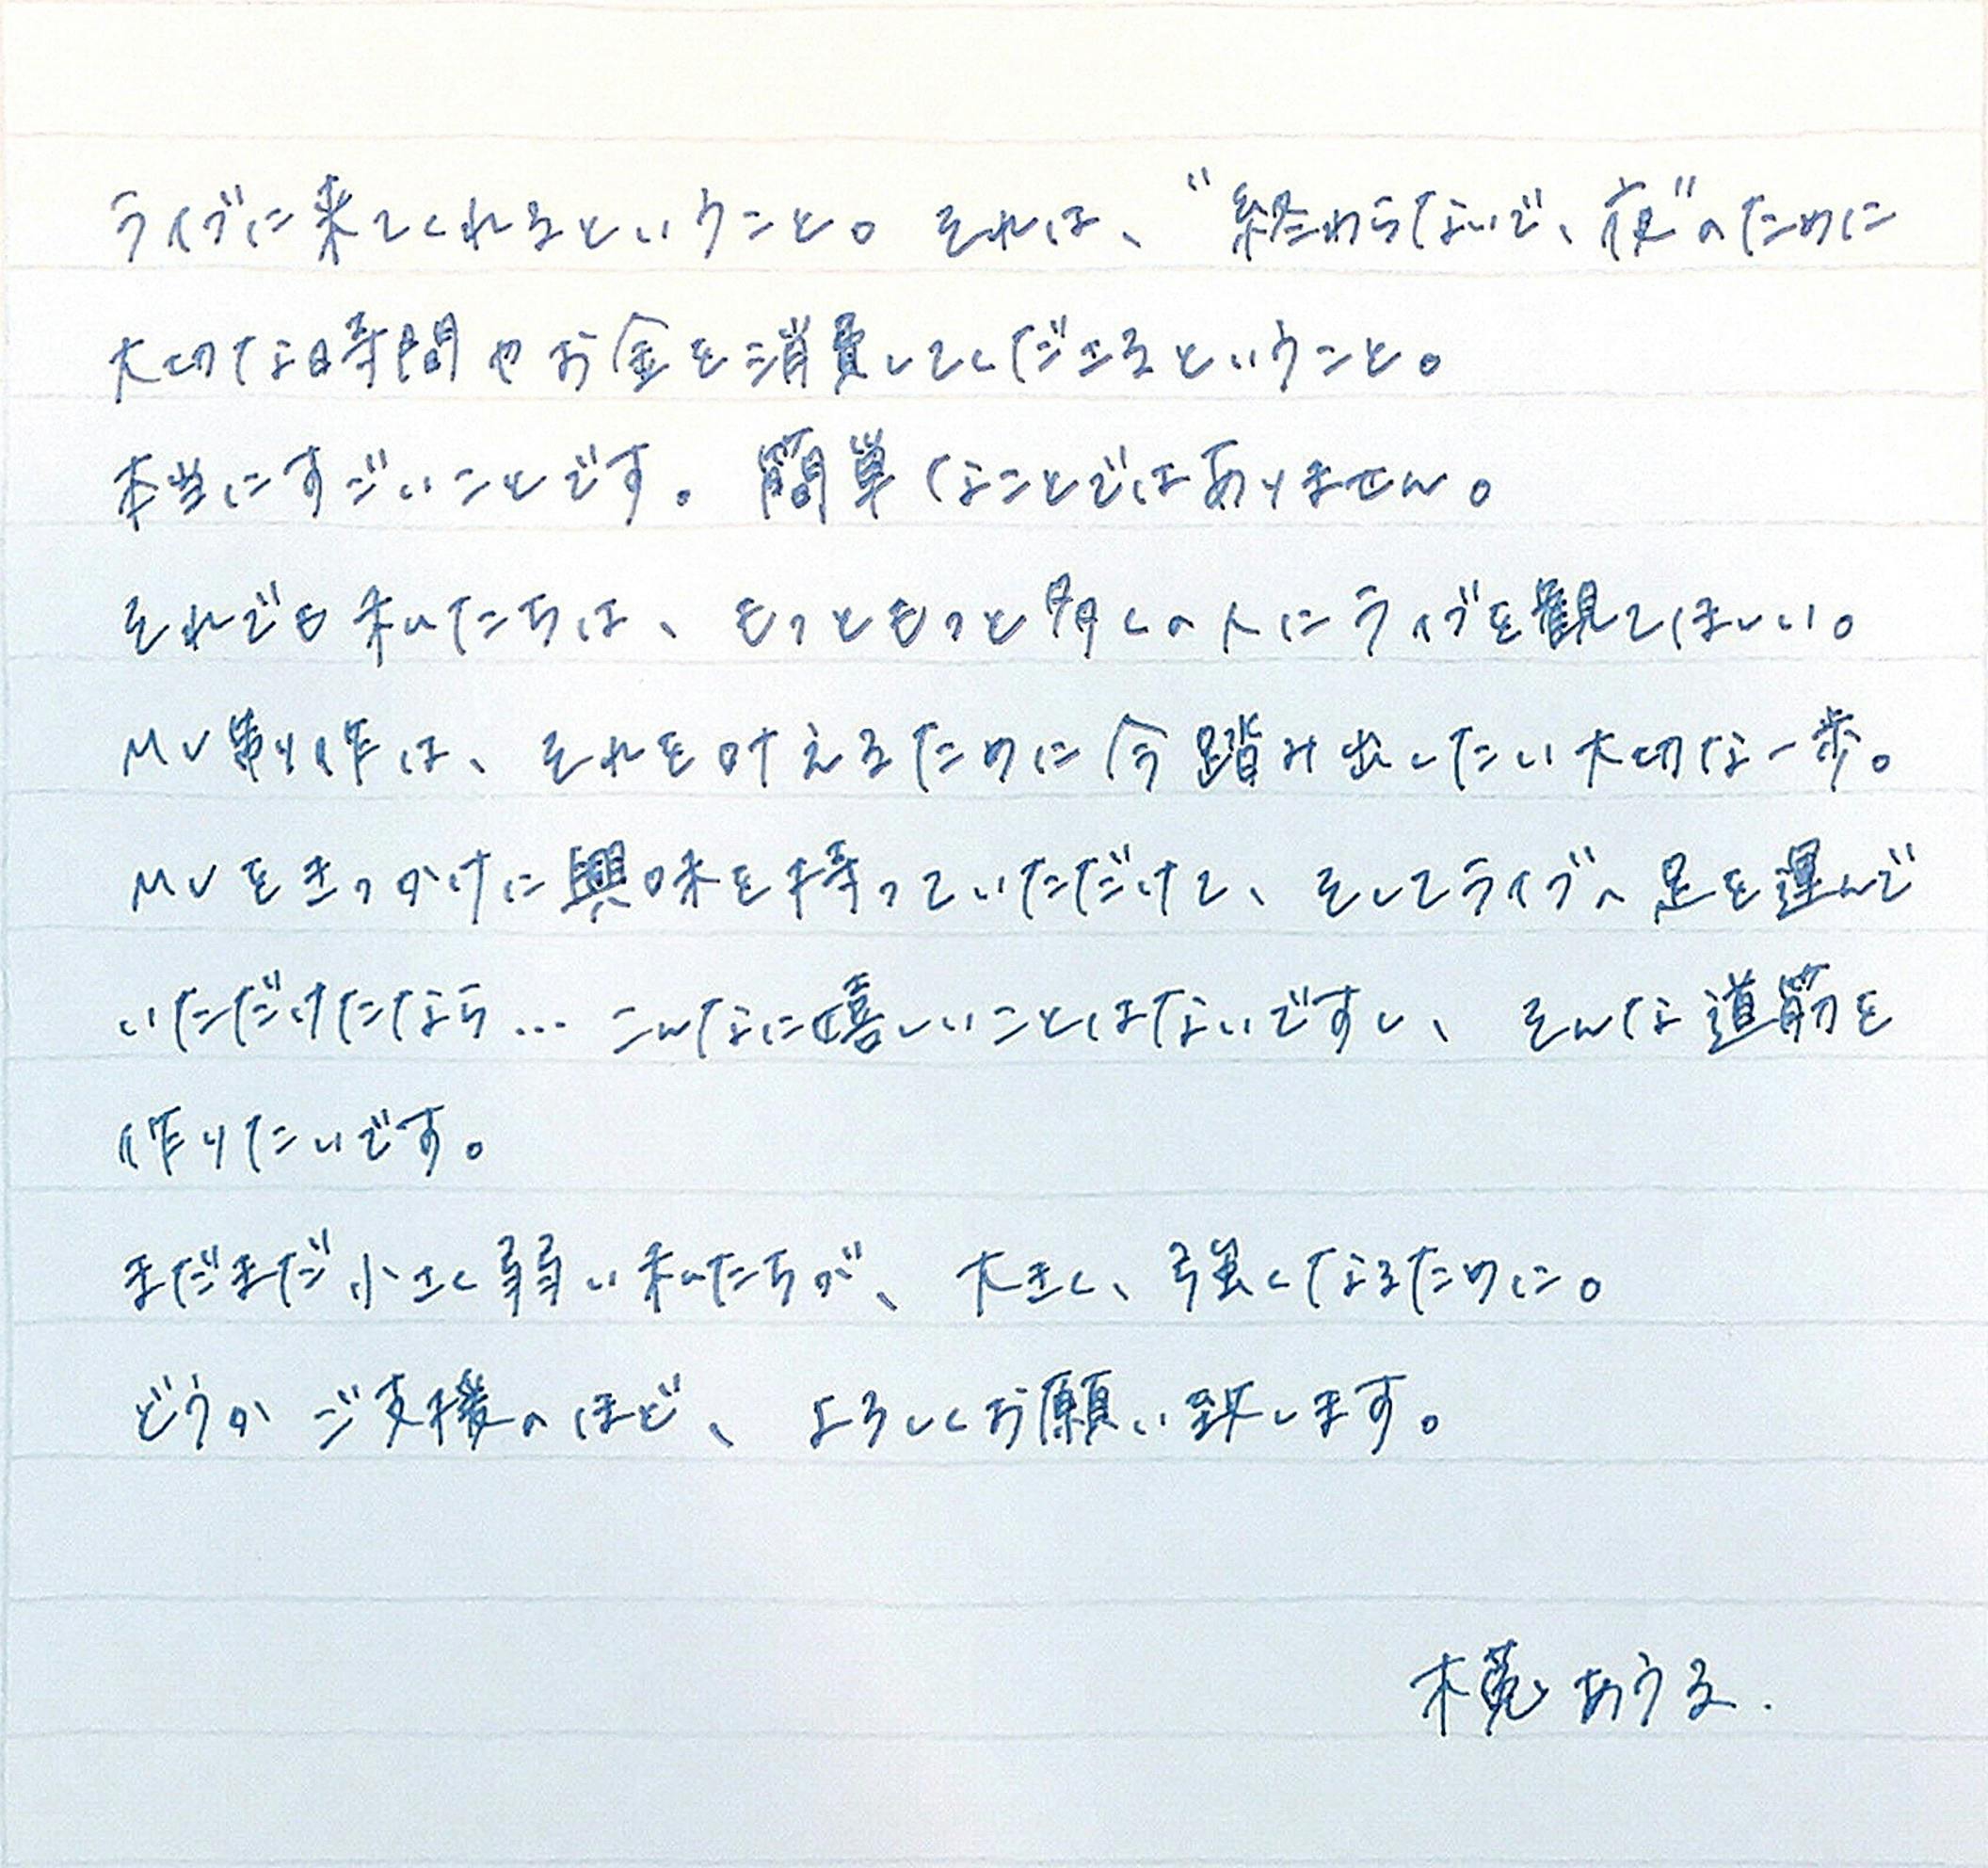 ライブに来てくれるということ。それは、“終わらないで、夜”のために
大切な時間やお金を消費してくださるということ。
本当にすごいことです。簡単なことではありません。
それでも私たちは、もっともっと多くの人にライブを観てほしい。
MV制作は、それを叶えるために今踏み出したい大切な一歩。
MVをきっかけに興味を持っていただけて、そしてライブへ足を運んで
いただけたなら…こんなに嬉しいことはないですし、そんな道筋を
作りたいです。
まだまだ小さく弱い私たちが、大きく、強くなるために。
どうかご支援のほど、よろしくお願い致します。
木菟あうる.